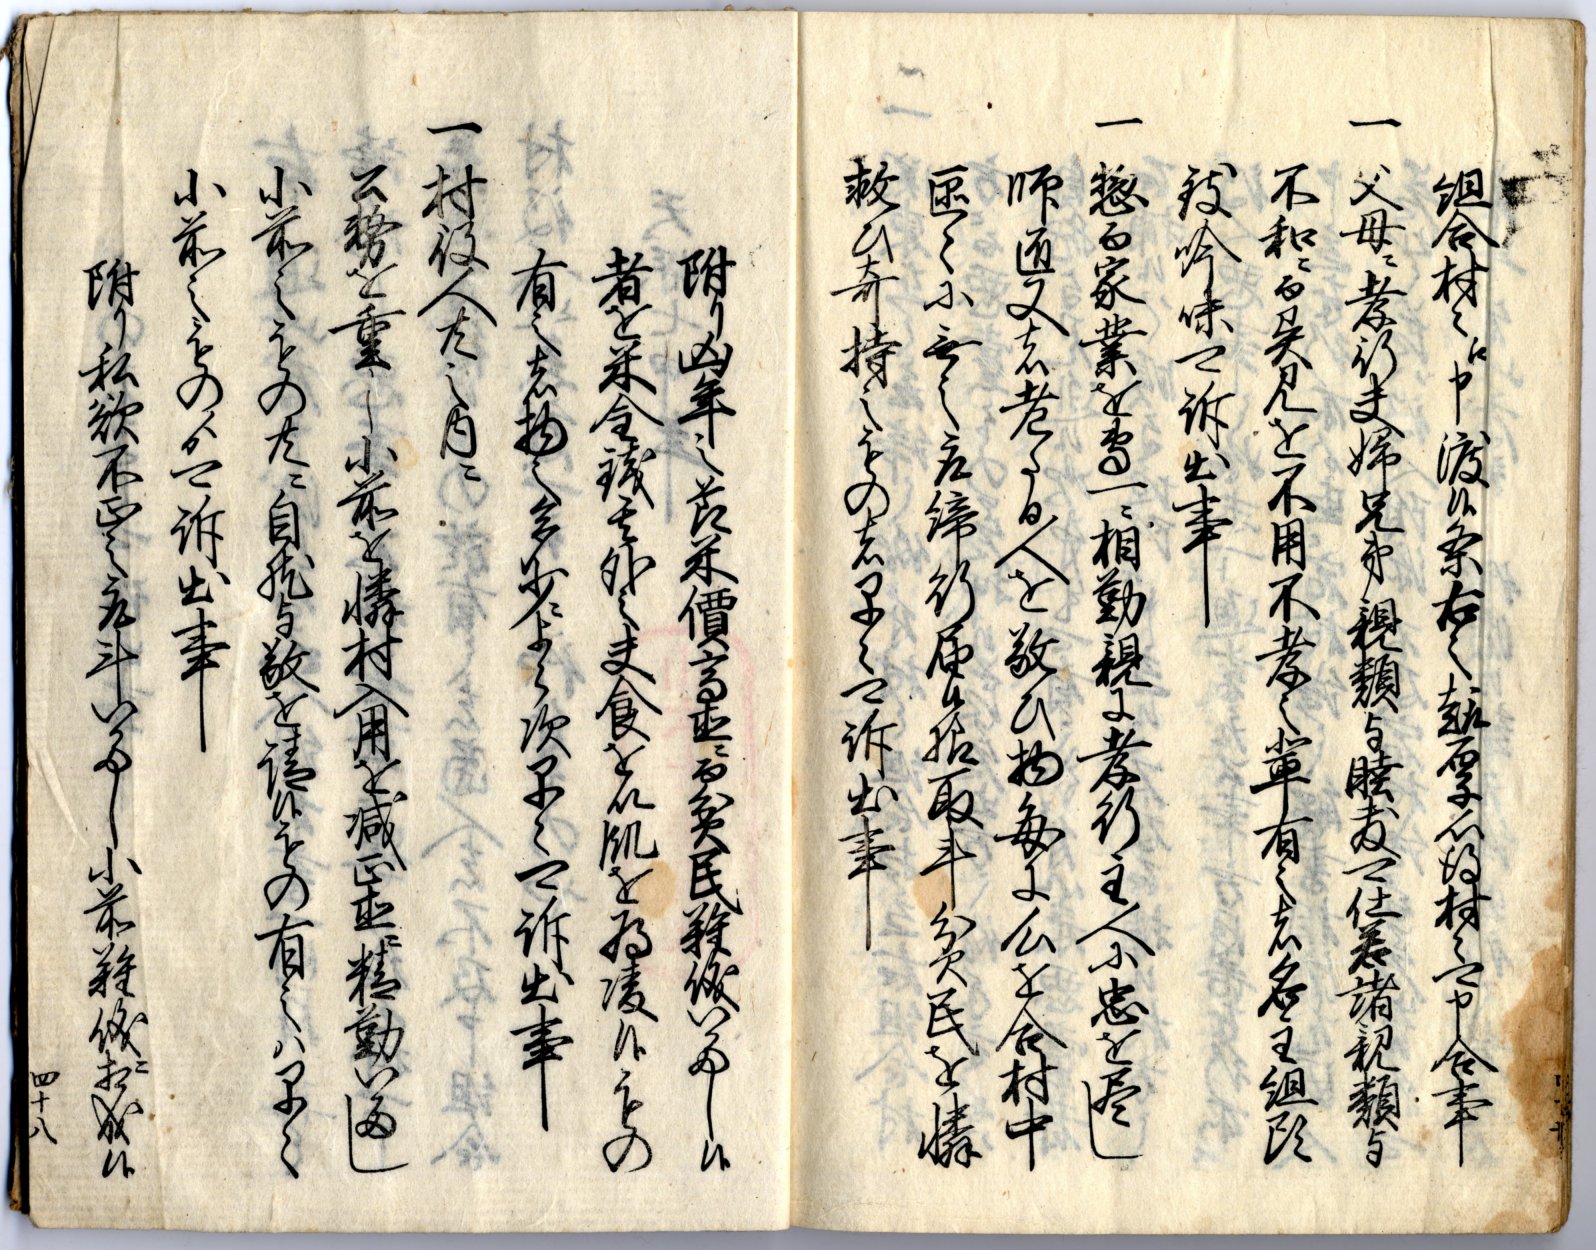 組合村々江申渡候条右之趣厚相心得村々可申合事
一 父母ニ孝行夫婦兄弟親類与睦敷可仕若諸親類与
不和ニ而異見を不用不孝之輩有之者名主組頭
致吟味可訴出事
一 惣而家業を専一ニ相勤親に孝行主人に忠を尽し
師匠又者老たる人を敬ひ物毎に公を合村中
区々に無之取締行届候様取斗貧民を憐
救ひ奇特之もの者早々可訴出事
附り凶年之節米價高直ニ而貧民難儀いたし候
者を米金銭其外之夫食を以飢を為凌候もの
有之者物之多少ニより次早々可訴出事
一 村役人共之内ニ
公務を重し小前を憐村入用を減正直ニ精勤いたし
小前之もの共ニ自然与敬を請候もの有之ハ早々
小前之ものゟ可訴出事
附り私欲不正之取斗いたし小前難儀ニ相成候
四十八